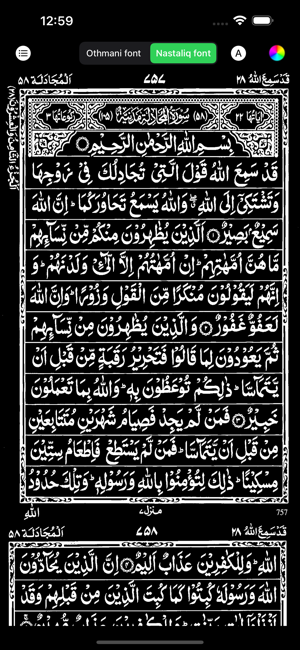 12:59
Othmani font
Nastaliq font
A
اَلْمُجَادَلَة ٥٨
٧٥٧
قَدْ سَمِعَ اللّٰهُ ٢٨
اٰيَاتُهَا ٢٢
(٥٨) سُوْرَةُ الْمُجَادَلَةِ مَدَنِيَّةٌ (١٠٥)
رُكُوْعَاتُهَا ٣
بِسْمِ اللّٰهِ الرَّحْمٰنِ الرَّحِيْمِ
قَدْ سَمِعَ اللّٰهُ قَوْلَ الَّتِيْ تُجَادِلُكَ فِيْ زَوْجِهَا
وَتَشْتَكِيْٓ اِلَى اللّٰهِ ۖ وَاللّٰهُ يَسْمَعُ تَحَاوُرَكُمَا ؕ اِنَّ اللّٰهَ
سَمِيْعٌۢ بَصِيْرٌ ۝١ اَلَّذِيْنَ يُظٰهِرُوْنَ مِنْكُمْ مِّنْ نِّسَآئِهِمْ
مَّا هُنَّ اُمَّهٰتِهِمْ ؕ اِنْ اُمَّهٰتُهُمْ اِلَّا الّٰٓـِٔيْ وَلَدْنَهُمْ ؕ وَ
اِنَّهُمْ لَيَقُوْلُوْنَ مُنْكَرًا مِّنَ الْقَوْلِ وَزُوْرًا ؕ وَاِنَّ اللّٰهَ
لَعَفُوٌّ غَفُوْرٌ ۝٢ وَالَّذِيْنَ يُظٰهِرُوْنَ مِنْ نِّسَآئِهِمْ
ثُمَّ يَعُوْدُوْنَ لِمَا قَالُوْا فَتَحْرِيْرُ رَقَبَةٍ مِّنْ قَبْلِ اَنْ
يَّتَمَآسَّا ؕ ذٰلِكُمْ تُوْعَظُوْنَ بِهٖ ؕ وَاللّٰهُ بِمَا تَعْمَلُوْنَ
خَبِيْرٌ ۝٣ فَمَنْ لَّمْ يَجِدْ فَصِيَامُ شَهْرَيْنِ مُتَتَابِعَيْنِ
مِنْ قَبْلِ اَنْ يَّتَمَآسَّا ۚ فَمَنْ لَّمْ يَسْتَطِعْ فَاِطْعَامُ سِتِّيْنَ
مِسْكِيْنًا ؕ ذٰلِكَ لِتُؤْمِنُوْا بِاللّٰهِ وَرَسُوْلِهٖ ؕ وَتِلْكَ حُدُوْدُ
اللّٰهِ
منزل٧
757
اَلْمُجَادَلَة ٥٨
٧٥٨
قَدْ سَمِعَ اللّٰهُ ٢٨
اللّٰهِ ؕ وَلِلْكٰفِرِيْنَ عَذَابٌ اَلِيْمٌ ۝٤ اِنَّ الَّذِيْنَ يُحَآدُّوْنَ
اللّٰهَ وَرَسُوْلَهٗ كُبِتُوْا كَمَا كُبِتَ الَّذِيْنَ مِنْ قَبْلِهِمْ وَقَدْ